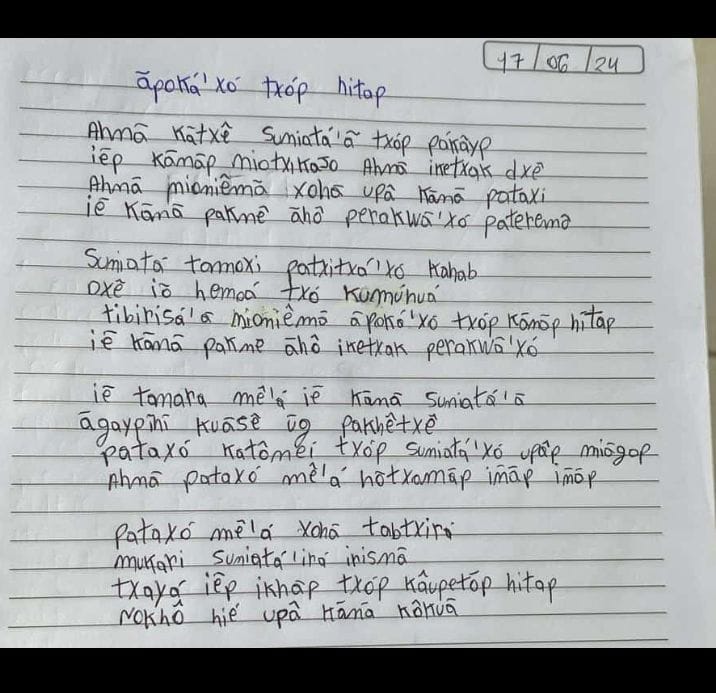 17/06/24
ãpoká'xó txóp hitap
Ahnã kãtxê suniatá'ã txóp pákâyp
iẽp kãnãp miotxikaso Ahnã iketxak dxê
Ahnã mioniêmã xohã upâ kãnã pataxi
iẽ kãnã pakmê ãhô perakwã'xó paterema
Suniatá tomoxi patxitxá'xó kahab
dxê iõ hemoá txó kumúhuá
tibirisá'ã mioniêmã ãpoká'xó txóp kãnãp hitap
iẽ kãnã pakme ãhô iketxak perakwã'xó
iẽ tanara mê'lá iẽ kãnã suniatá'ã
ãgaypihi kuãsê ũg pakhêtxê
pataxó katômei txóp suniatá'xó upâp miãgap
Ahnã pataxó mê'lá hõtxamãp imãp imãp
pataxó mê'lá xohã tabtxiró
mukari suniatá'iró inismã
txayá iẽp ikhãp txóp kâupetóp hitap
Nokhô hié upâ kãnã kãkuã